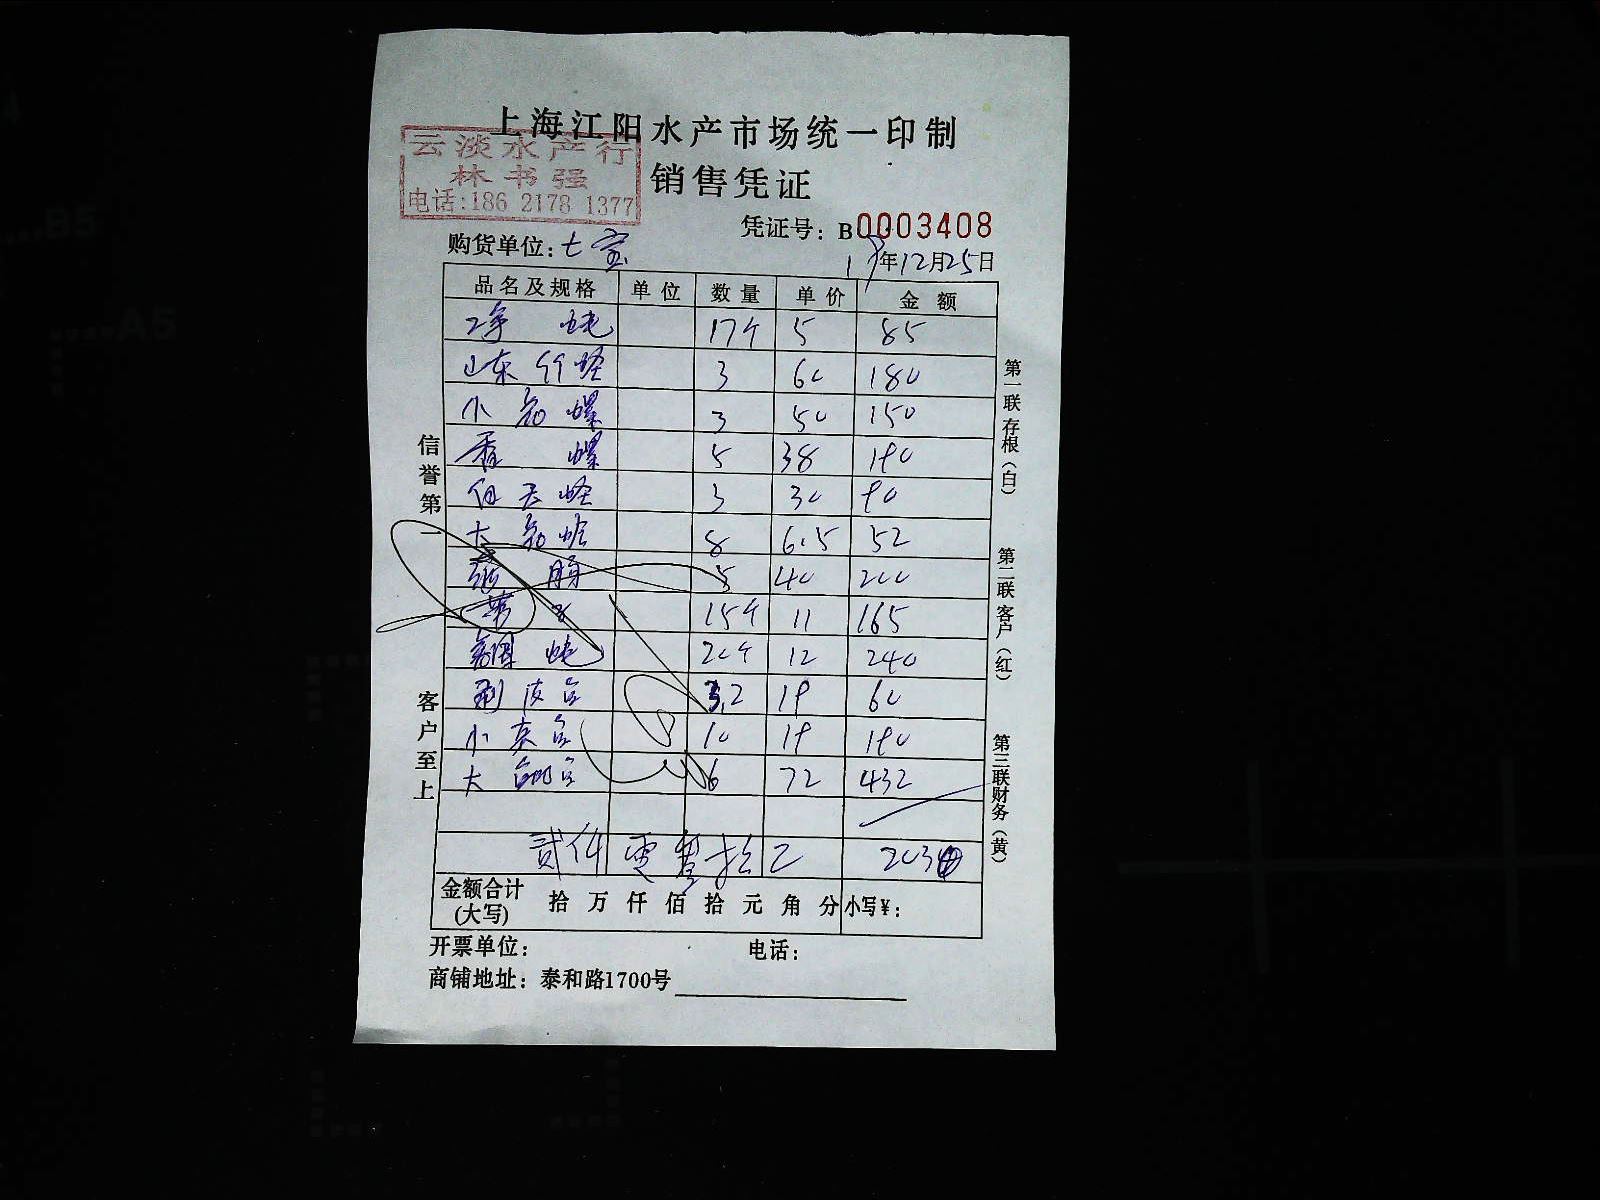 上海江阳水产市场统一印制
云淡水产行
林书强
电话:186 2178 1377
销售凭证
凭证号: B0003408
购货单位:七宝
年12月25日
品名及规格 单位 数量 单价 金额
17个 5 85
山东 3 60 180
小 螺 3 50 150
香螺 5 38 190
3 30 90
大 8 6.5 52
5 40 200
15个 11 165
20个 12 240
3.2 19 60
小 10 19 190
大 6 72 432
贰仟零叁拾 2034
金额合计(大写) 拾 万 仟 佰 拾 元 角 分 小写¥:
开票单位: 电话:
商铺地址: 泰和路1700号
信誉第一
客户至上
第一联存根(白)
第二联客户(红)
第三联财务(黄)